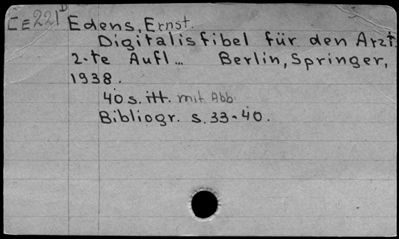 CE221D Edens, Ernst.
Digitalisfibel für den Arzt.
2-te Aufl... Berlin, Springer,
1938.
40 s. itt. mit Abb.
Bibliogr. s. 33-40.